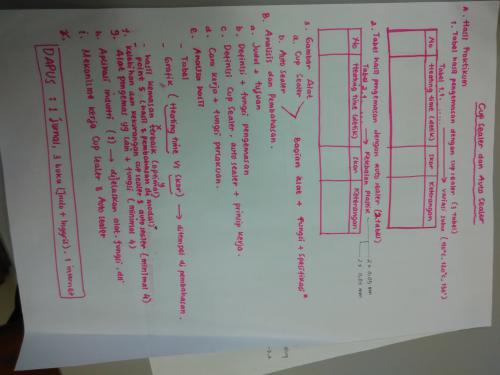 Cup sealer dan Auto sealer
A. Hasil Praktikum
1. Tabel hasil pengemasan dengan cup sealer (3 tabel)
Tabel 1.1. ............ → variasi suhu
No | Heating time (detik) | Skor | Keterangan
2. Tabel hasil pengemasan dengan auto sealer (2 tabel)
Tabel 2.1. ............ → ketebalan plastik
No | Heating time (detik) | Skor | Keterangan
3. Gambar Alat
a. Cup sealer
b. Auto sealer
Bagian alat + fungsi + spesifikasi
B. Analisis dan Pembahasan.
a. Judul + tujuan
b. Definisi + fungsi pengemasan
c. Definisi Cup Sealer, auto sealer + prinsip kerja.
d. Cara kerja + fungsi perlakuan.
e. Analisa hasil
- Tabel
- Grafik (Heating time Vs Skor) → ditempel di pembahasan.
x y
- hasil kemasan terbaik (optimal)
f. Kelebihan dan kekurangan cup sealer & auto sealer (minimal 4)
g. Alat pengemas yg lain + fungsi (minimal 4)
h. Aplikasi industri (1) → dijelaskan alat, fungsi, dll
i. Mekanisme kerja Cup Sealer & Auto sealer
DAPUS : 1 jurnal, 3 buku [Indo + Inggris], 1 internet